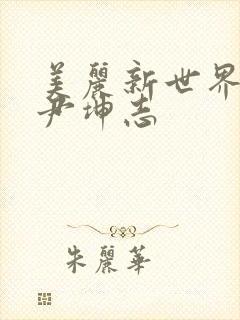 美麗新世界
尹坤志
朱麗華